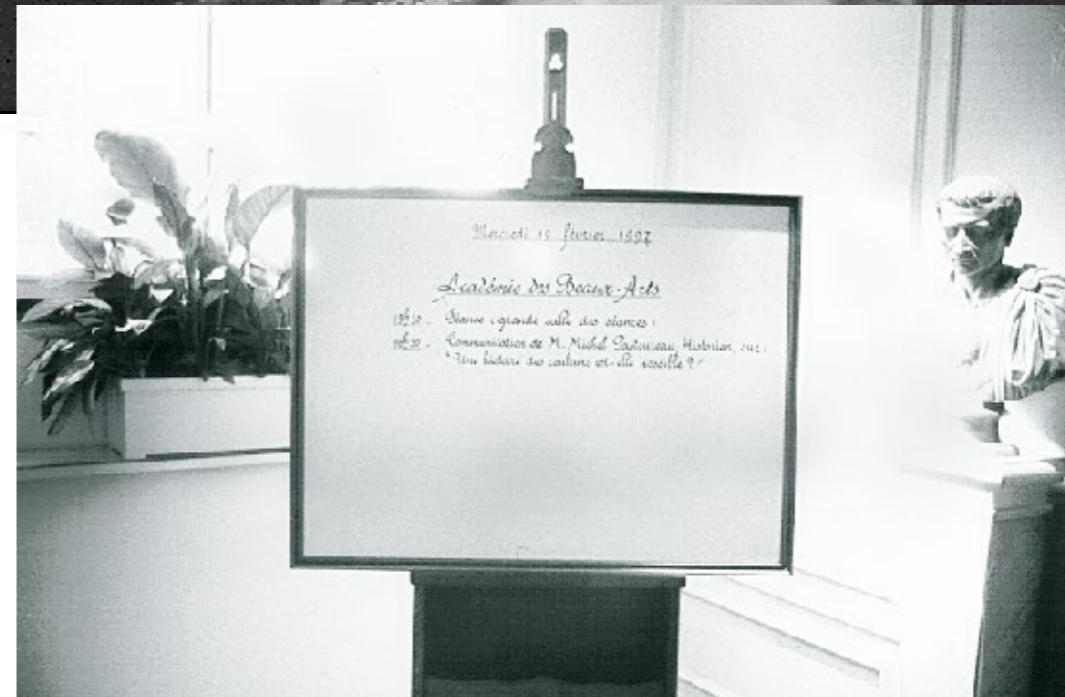 Mercredi 19 février 1997
Académie des Beaux-Arts
Séance (grande salle des séances)
Communication de M. Michel Pastoureau, Historien, sur :
"Une histoire des couleurs est-elle possible ?"